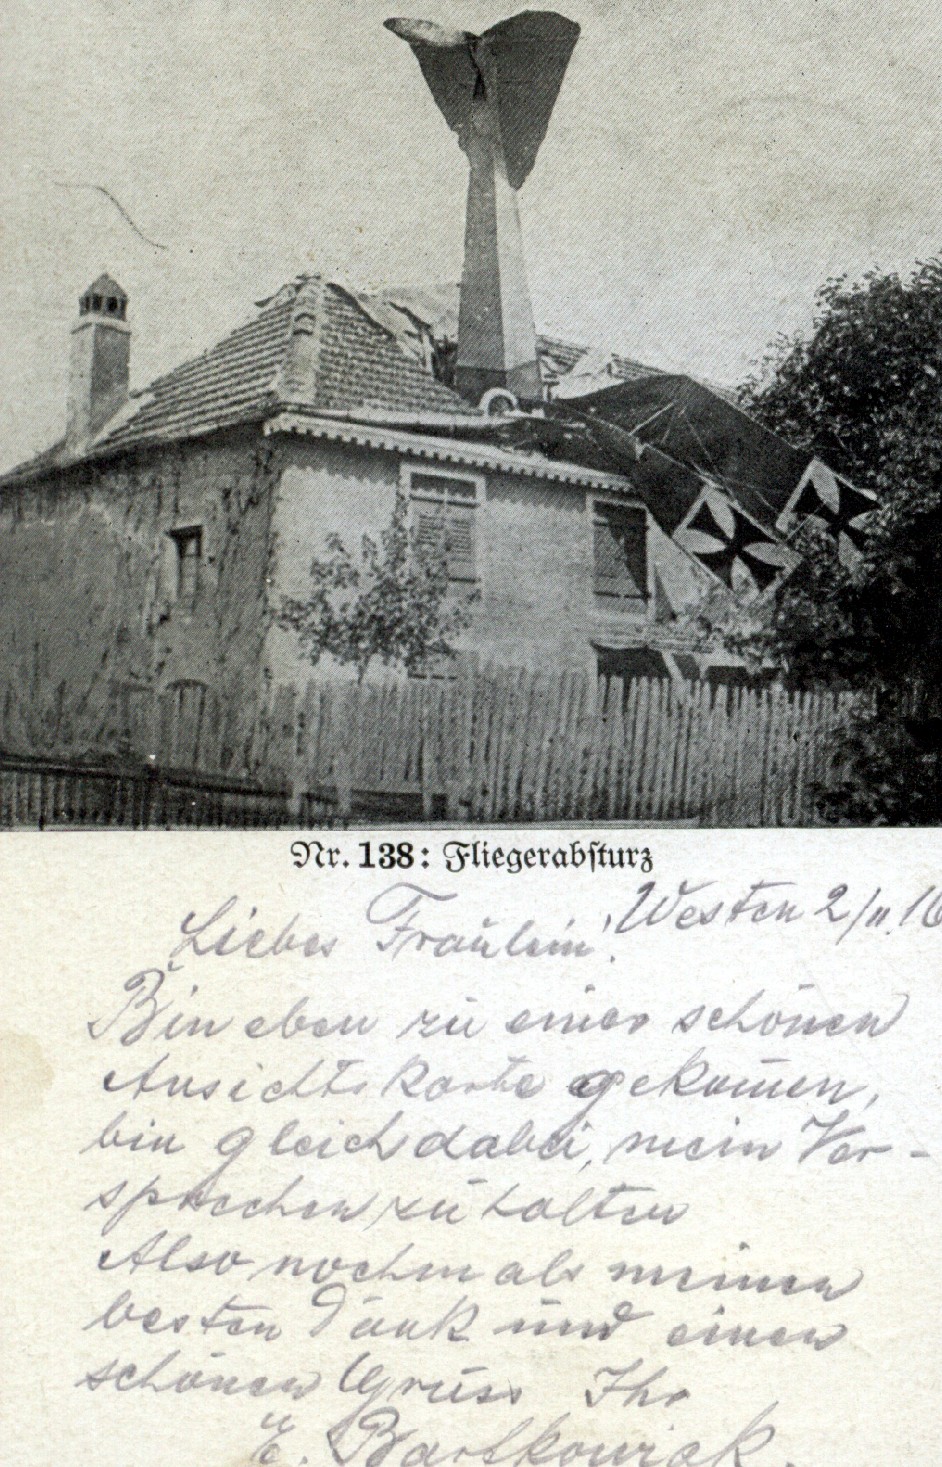 Nr. 138: Fliegerabsturz
Westen 2/11.16
Liebes Fräulein!
Bin eben zu einer schönen
Ansichtskarte gekomen,
bin gleich dabei, mein Ver-
sprechen zu halten
Also nochmals meinen
besten Dank und einen
schönen Gruss Ihr
E. Bartkowiak.